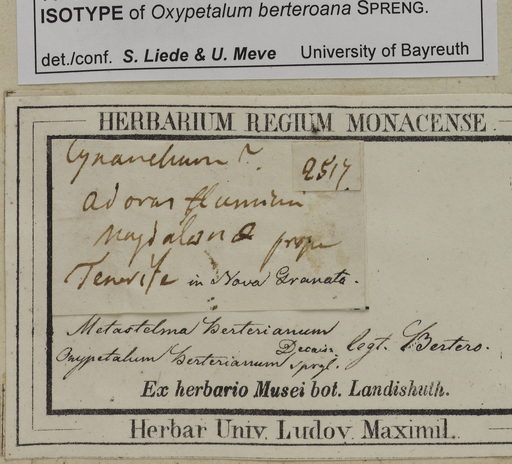 ISOTYPE of Oxypetalum berteroana SPRENG.
det./conf. S. Liede & U. Meve University of Bayreuth
HERBARIUM REGIUM MONACENSE.
Cynanchum ?.
2517.
ad oras fluminis
Magdalenae prope
Tenerife in Nova Granata.
Metastelma berterianum
Decaisn. legt. Bertero.
Oxypetalum berterianum sprgl.
Ex herbario Musei bot. Landishuth.
Herbar. Univ. Ludov. Maximil.